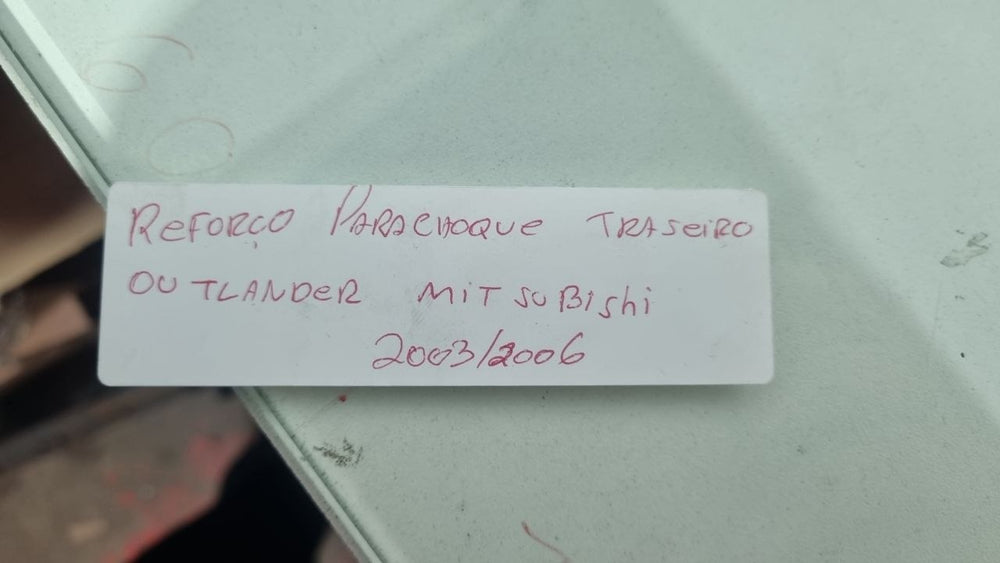 ReFORÇO PARACHOQUE TRASeiRO
OUTLANDER MiTSUBishi
2003/2006